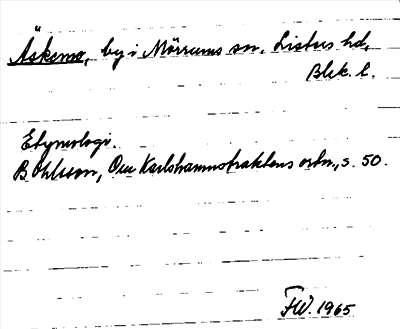 Äskemo, by i Mörrums sn, Listers hd,
Blek. l.
Etymologi.
B Ohlsson, Om Karlshamnstraktens ortn., s. 50.
FW. 1965